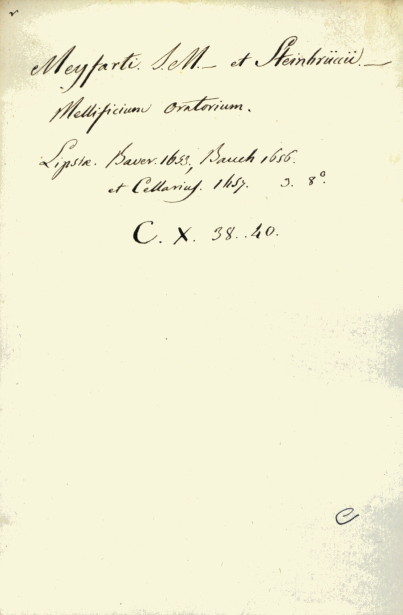 Meyfarti. S. M. – et Steinbrücii. –
Mellificium oratorium.
Lipsiæ. Baver. 1653, Bauch 1656.
et Cellarius. 1657. 3. 8°.
C. X. 38..40.
C